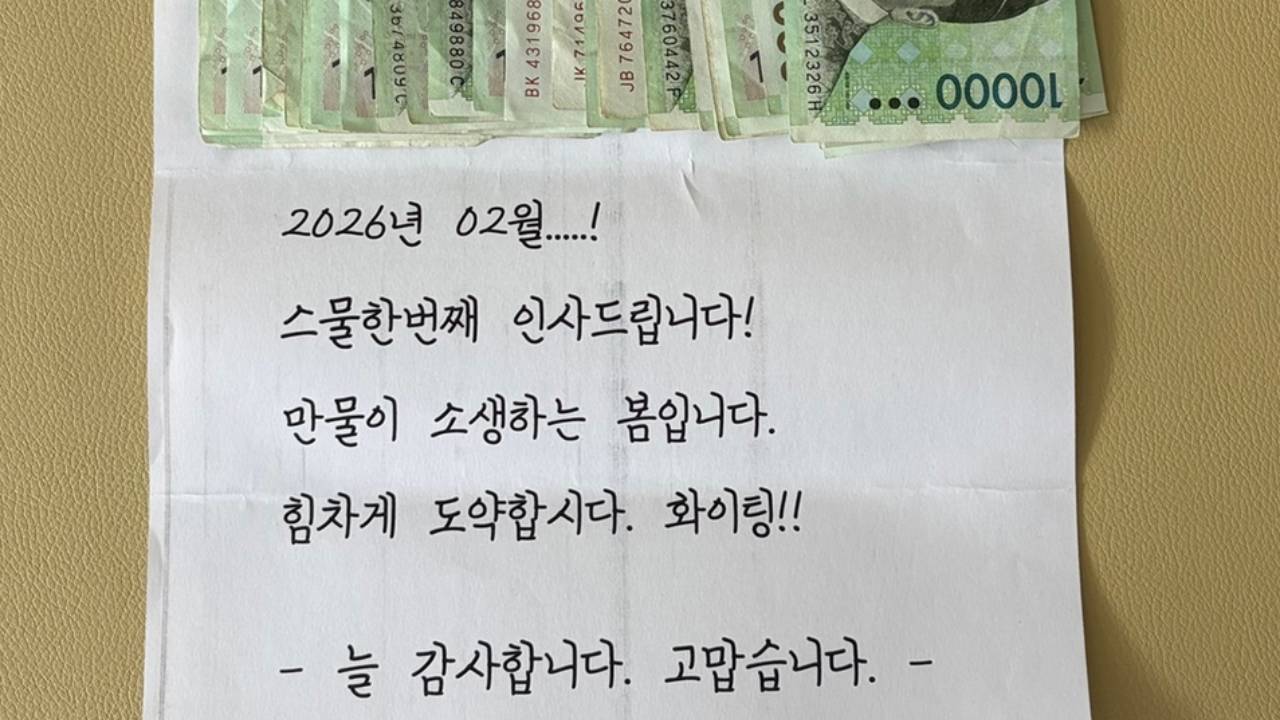 849880C
BK 431968
JB 76472
3760442 P
3512326 H
10000
2026년 02월.....!
스물한번째 인사드립니다!
만물이 소생하는 봄입니다.
힘차게 도약합시다. 화이팅!!
- 늘 감사합니다. 고맙습니다. -